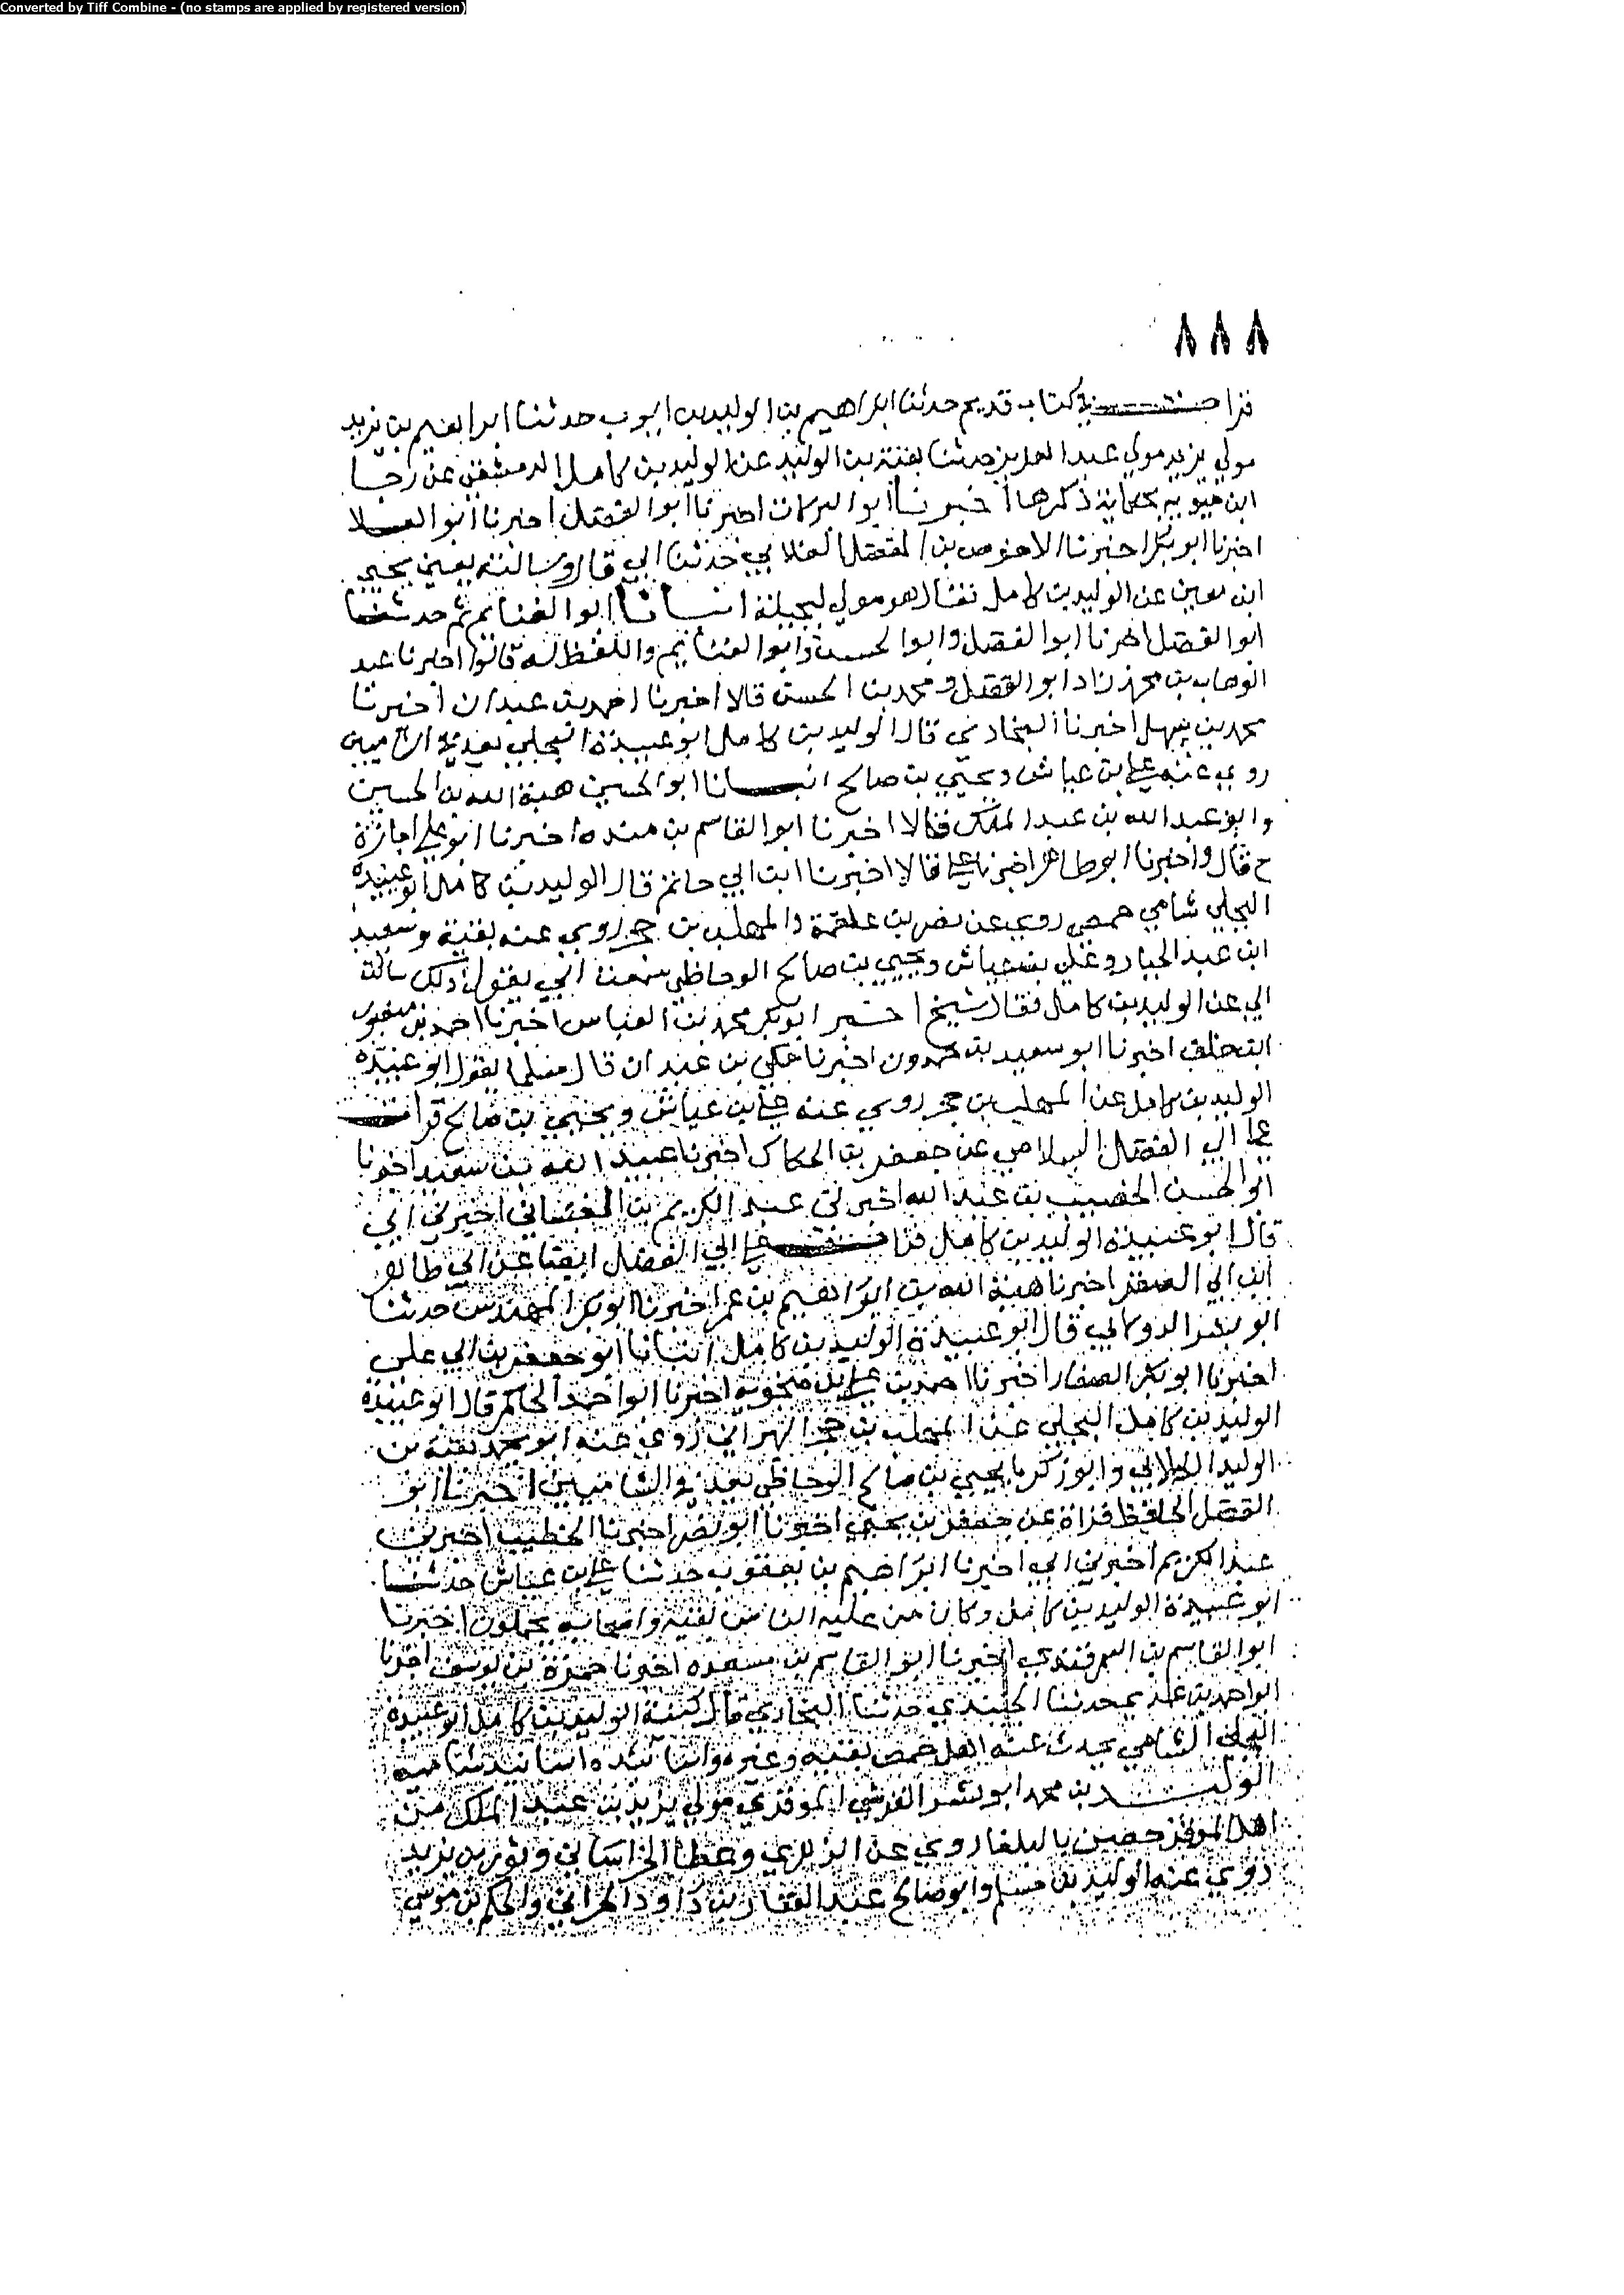 Converted by Tiff Combine - (no stamps are applied by registered version)
٨٨٨
قرات في كتاب قديم حدثنا ابراهيم بن الوليد بن ايوب حدثنا ابراهيم بن يزيد
مولى يزيد مولى عبد العزيز حدثنا بقية بن الوليد عن الوليد بن كامل الدمشقي عن رجا
ابن حيويه بحكاية ذكرها اخبرنا ابو البركات اخبرنا ابو الفضل اخبرنا ابو العلا
اخبرنا ابو بكر اخبرنا الاحوص بن المفضل الغلابي حدثنا ابي قال وسالته يعني يحيى
ابن معين عن الوليد بن كامل فقال هو مولى لبجيلة انبانا ابو الغنائم ثم حدثنا
ابو الفضل اخبرنا ابو الفضل وابو الحسين وابو الغنائم واللفظ له قالوا اخبرنا عبد
الوهاب بن محمد زاد ابو الفضل ومحمد بن الحسن قالا اخبرنا احمد بن عبدان اخبرنا
محمد بن سهل اخبرنا البخاري قال الوليد بن كامل ابو عبيدة البجلي يعد في الشاميين
روى عنه علي بن عياش ويحيى بن صالح انبانا ابو الحسين هبة الله بن الحسين
وابو عبد الله بن عبد الملك قالا اخبرنا ابو القاسم بن منده اخبرنا ابو علي اجازة
ح قال واخبرنا ابو طاهر اخبرنا علي قالا اخبرنا ابن ابي حاتم قال الوليد بن كامل ابو عبيدة
البجلي شامي حمصي روى عن نصر بن علقمة والمهلب بن حجر روى عنه بقية وسعيد
ابن عبد الجبار وعلي بن عياش ويحيى بن صالح الوحاظي سمعت ابي يقول ذلك سالت
ابي عن الوليد بن كامل فقال شيخ اخبرنا ابو بكر محمد بن العباس اخبرنا احمد بن منصور
ابن خلف اخبرنا ابو سعيد بن حمدون اخبرنا مكي بن عبدان قال مسلما يقول ابو عبيدة
الوليد بن كامل عن المهلب بن حجر روى عنه علي بن عياش ويحيى بن صالح قرات
على ابي الفضل السلامي عن جعفر بن الحكاك اخبرنا عبيد الله بن سعيد اخبرنا
ابو الحسن الخصيب بن عبد الله اخبرني عبد الكريم بن اخبرني ابي
قال ابو عبيدة الوليد بن كامل قرات على ابي الفضل ايضا عن ابي طاهر
ابن ابي الصقر اخبرنا هبة الله بن ابراهيم بن عمر اخبرنا ابو بكر المهندس حدثنا
ابو بشر الدولابي قال ابو عبيدة الوليد بن كامل انبانا ابو جعفر بن ابي علي
اخبرنا ابو بكر الصفار اخبرنا احمد بن علي بن منجويه اخبرنا ابو احمد الحاكم قال ابو عبيدة
الوليد بن كامل البجلي عن المهلب بن حجر البهراني روى عنه ابو يحمد بقية بن
الوليد الكلاعي وابو زكريا يحيى بن صالح الوحاظي يعد في الشاميين اخبرنا ابو
الفضل الحافظ قراة عن جعفر بن يحيى اخبرنا ابو نصر اخبرنا الخطيب اخبرني
عبد الكريم اخبرني ابي اخبرنا ابراهيم بن يعقوب حدثنا علي بن عياش حدثنا
ابو عبيدة الوليد بن كامل وكان من علية الناس بقية واصحابه يجلون اخبرنا
ابو القاسم بن السمرقندي اخبرنا ابو القاسم بن مسعده اخبرنا حمزة بن يوسف اخبرنا
ابو احمد بن عدي حدثنا الجنيدي حدثنا البخاري قال كنية الوليد بن كامل ابو عبيدة
البجلي الشامي يحدث عنه اهل حمص بقية وغيره واسا نيده اسانيد شامية
الوليد بن محمد ابو بشر القرشي الموقري مولى يزيد بن عبد الملك من
اهل الموقر حصين بالبلقا روى عن الزهري وعطا الخراساني وثور بن يزيد
روى عنه الوليد بن مسلم وابو صالح عبد الغفار بن داود الحراني والحكم بن موسى